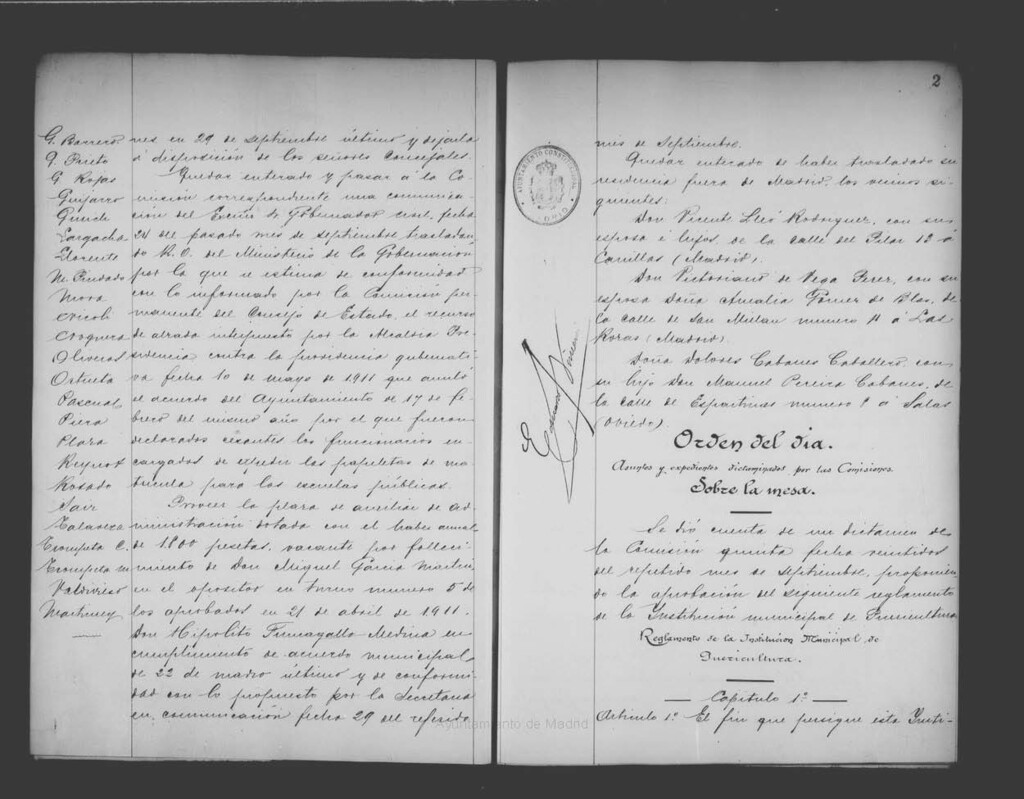 G. Barrero
G. Prieto
G. Rojas
Guijarro
Largacha
Llorente
Mora
Nicoli
Noguera
Oliveros
Ortueta
Pascual
Piera
Plaza
Reynot
Rosado
Talavera
Trompeta C.
Trompeta M
Valdivieso
Martinez
nes en 29 de septiembre último y dejarla
á disposición de los señores concejales.
Quedar enterado y pasar á la Co-
misión correspondiente una comunica-
ción del Excmo Sr Gobernador civil, fecha
24 del pasado mes de septiembre, trasladan-
do R. O. del Ministerio de la Gobernación
por la que se estima de conformidad
con lo informado por la Comisión per-
manente del Consejo de Estado, el recurso
de alzada interpuesto por la Alcaldia Pre-
sidencia contra la providencia gubernati-
va fecha 10 de mayo de 1911 que anuló
el acuerdo del Ayuntamiento de 17 de fe-
brero del mismo año por el que fueron
declarados cesantes los funcionarios en-
cargados de expedir las papeletas de ma-
tricula para las escuelas públicas.
Proveer la plaza de auxiliar de ad-
ministración dotada con el haber anual
de 1.800 pesetas, vacante por falleci-
miento de Don Miguel Garcia Martin,
en el opositor en turno numero 5 de
los aprobados en 21 de abril de 1911.
Don Hipolito Fumagallo Medina en
cumplimiento de acuerdo municipal
de 22 de marzo último y de conformi-
dad con lo propuesto por la Secretaria
en comunicación fecha 29 del referido
2
AYUNTAMIENTO CONSTITUCIONAL
mes de Septiembre.
Quedar enterado de haber trasladado su
residencia fuera de Madrid, los vecinos si-
guientes:
Don Vicente Lleó Rodriguez, con su
esposa é hijos, de la calle del Pilar 12 á
Canillas (Madrid).
Don Victoriano de Vega Perez, con su
esposa Doña Amalia de Blas, de
la calle de San Millan numero 4 á Las
Rozas (Madrid).
Doña Dolores Cabanes Caballero, con
su hijo Don Manuel Pereira Cabanes, de
la calle de Espartinas numero á Salas
(Oviedo).
Orden del dia.
Asuntos y expedientes dictaminados por las Comisiones.
Sobre la mesa.
Se dió cuenta de un dictamen de
la Comisión quinta fecha veintidos
del repetido mes de Septiembre, proponien-
do la aprobación del siguiente reglamento
de la Institución municipal de Puericultura
Reglamento de la Institucion Municipal de
Puericultura.
Capitulo 1º
Articulo 1º El fin que persigue esta Insti-
Ayuntamiento de Madrid